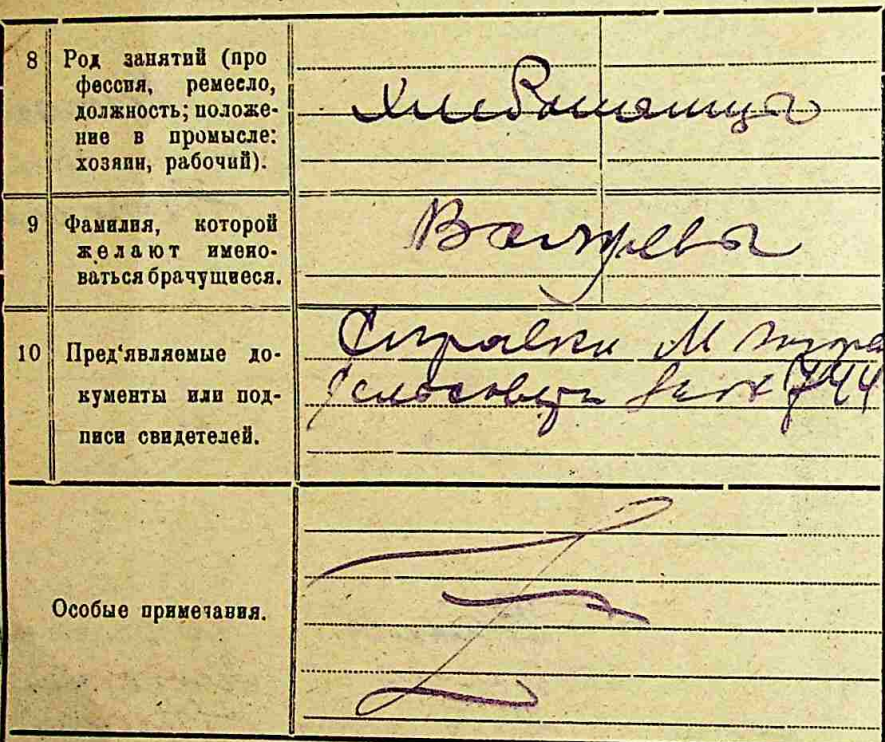 8 Род занятий (про
фессия, ремесло,
должность; положе-
ние в промысле:
хозяин, рабочий).
Хлебопашцы
9 Фамилия, которой
желают имено-
ваться брачущиеся.
10 Пред'являемые до-
кументы или под-
писи свидетелей.
Справки М
сельсовета 744
Особые примечания.